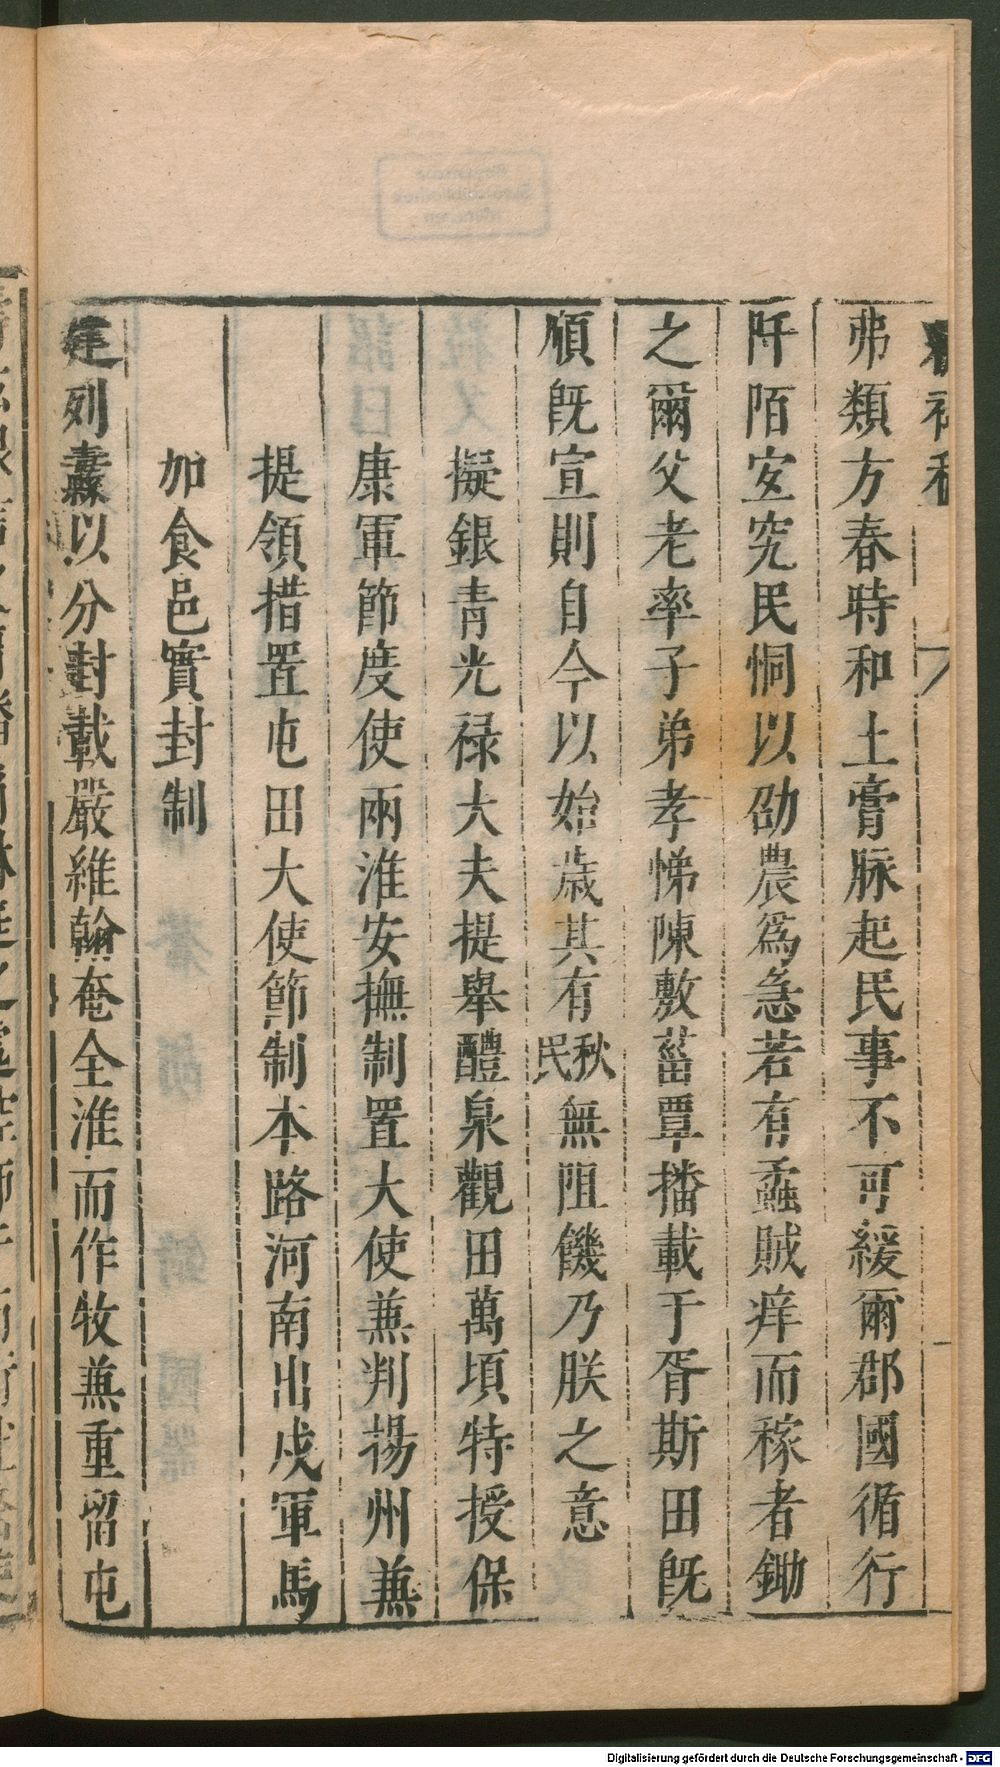 弗類方春時和土膏脉起民事不可緩爾郡國循行
阡陌宻究民恫以劭農爲急若有蟊賊痒而稼者鋤
之爾父老率子弟孝悌陳敷菑覃播載于胥斯田旣
頃旣宣則自今以始歲其有秋民無阻饑乃朕之意
擬銀青光祿大夫提舉醴泉觀田萬頃特授保
康軍節度使兩淮安撫制置大使兼判揚州兼
提領措置屯田大使節制本路河南出戍軍馬
加食邑實封制
建列纛以分封載嚴維翰奄全淮而作牧兼重留屯
Digitalisierung gefördert durch die Deutsche Forschungsgemeinschaft - DFG